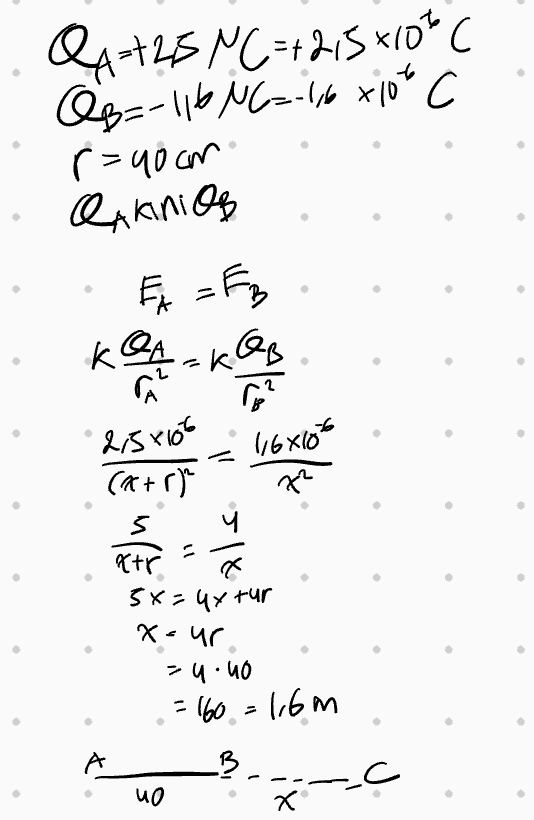 Q_A=+2,5 μC=+2,5 ×10⁻⁶ C
Q_B=-1,6 μC=-1,6 ×10⁻⁶ C
r = 40 cm
Q_A kiri Q_B
E_A = E_B
k Q_A/r_A² = k Q_B/r_B²
2,5×10⁻⁶/(x+r)² = 1,6×10⁻⁶/x²
5/(x+r) = 4/x
5x = 4x+4r
x = 4r
= 4 · 40
= 160 = 1,6 m
A B C
40 x